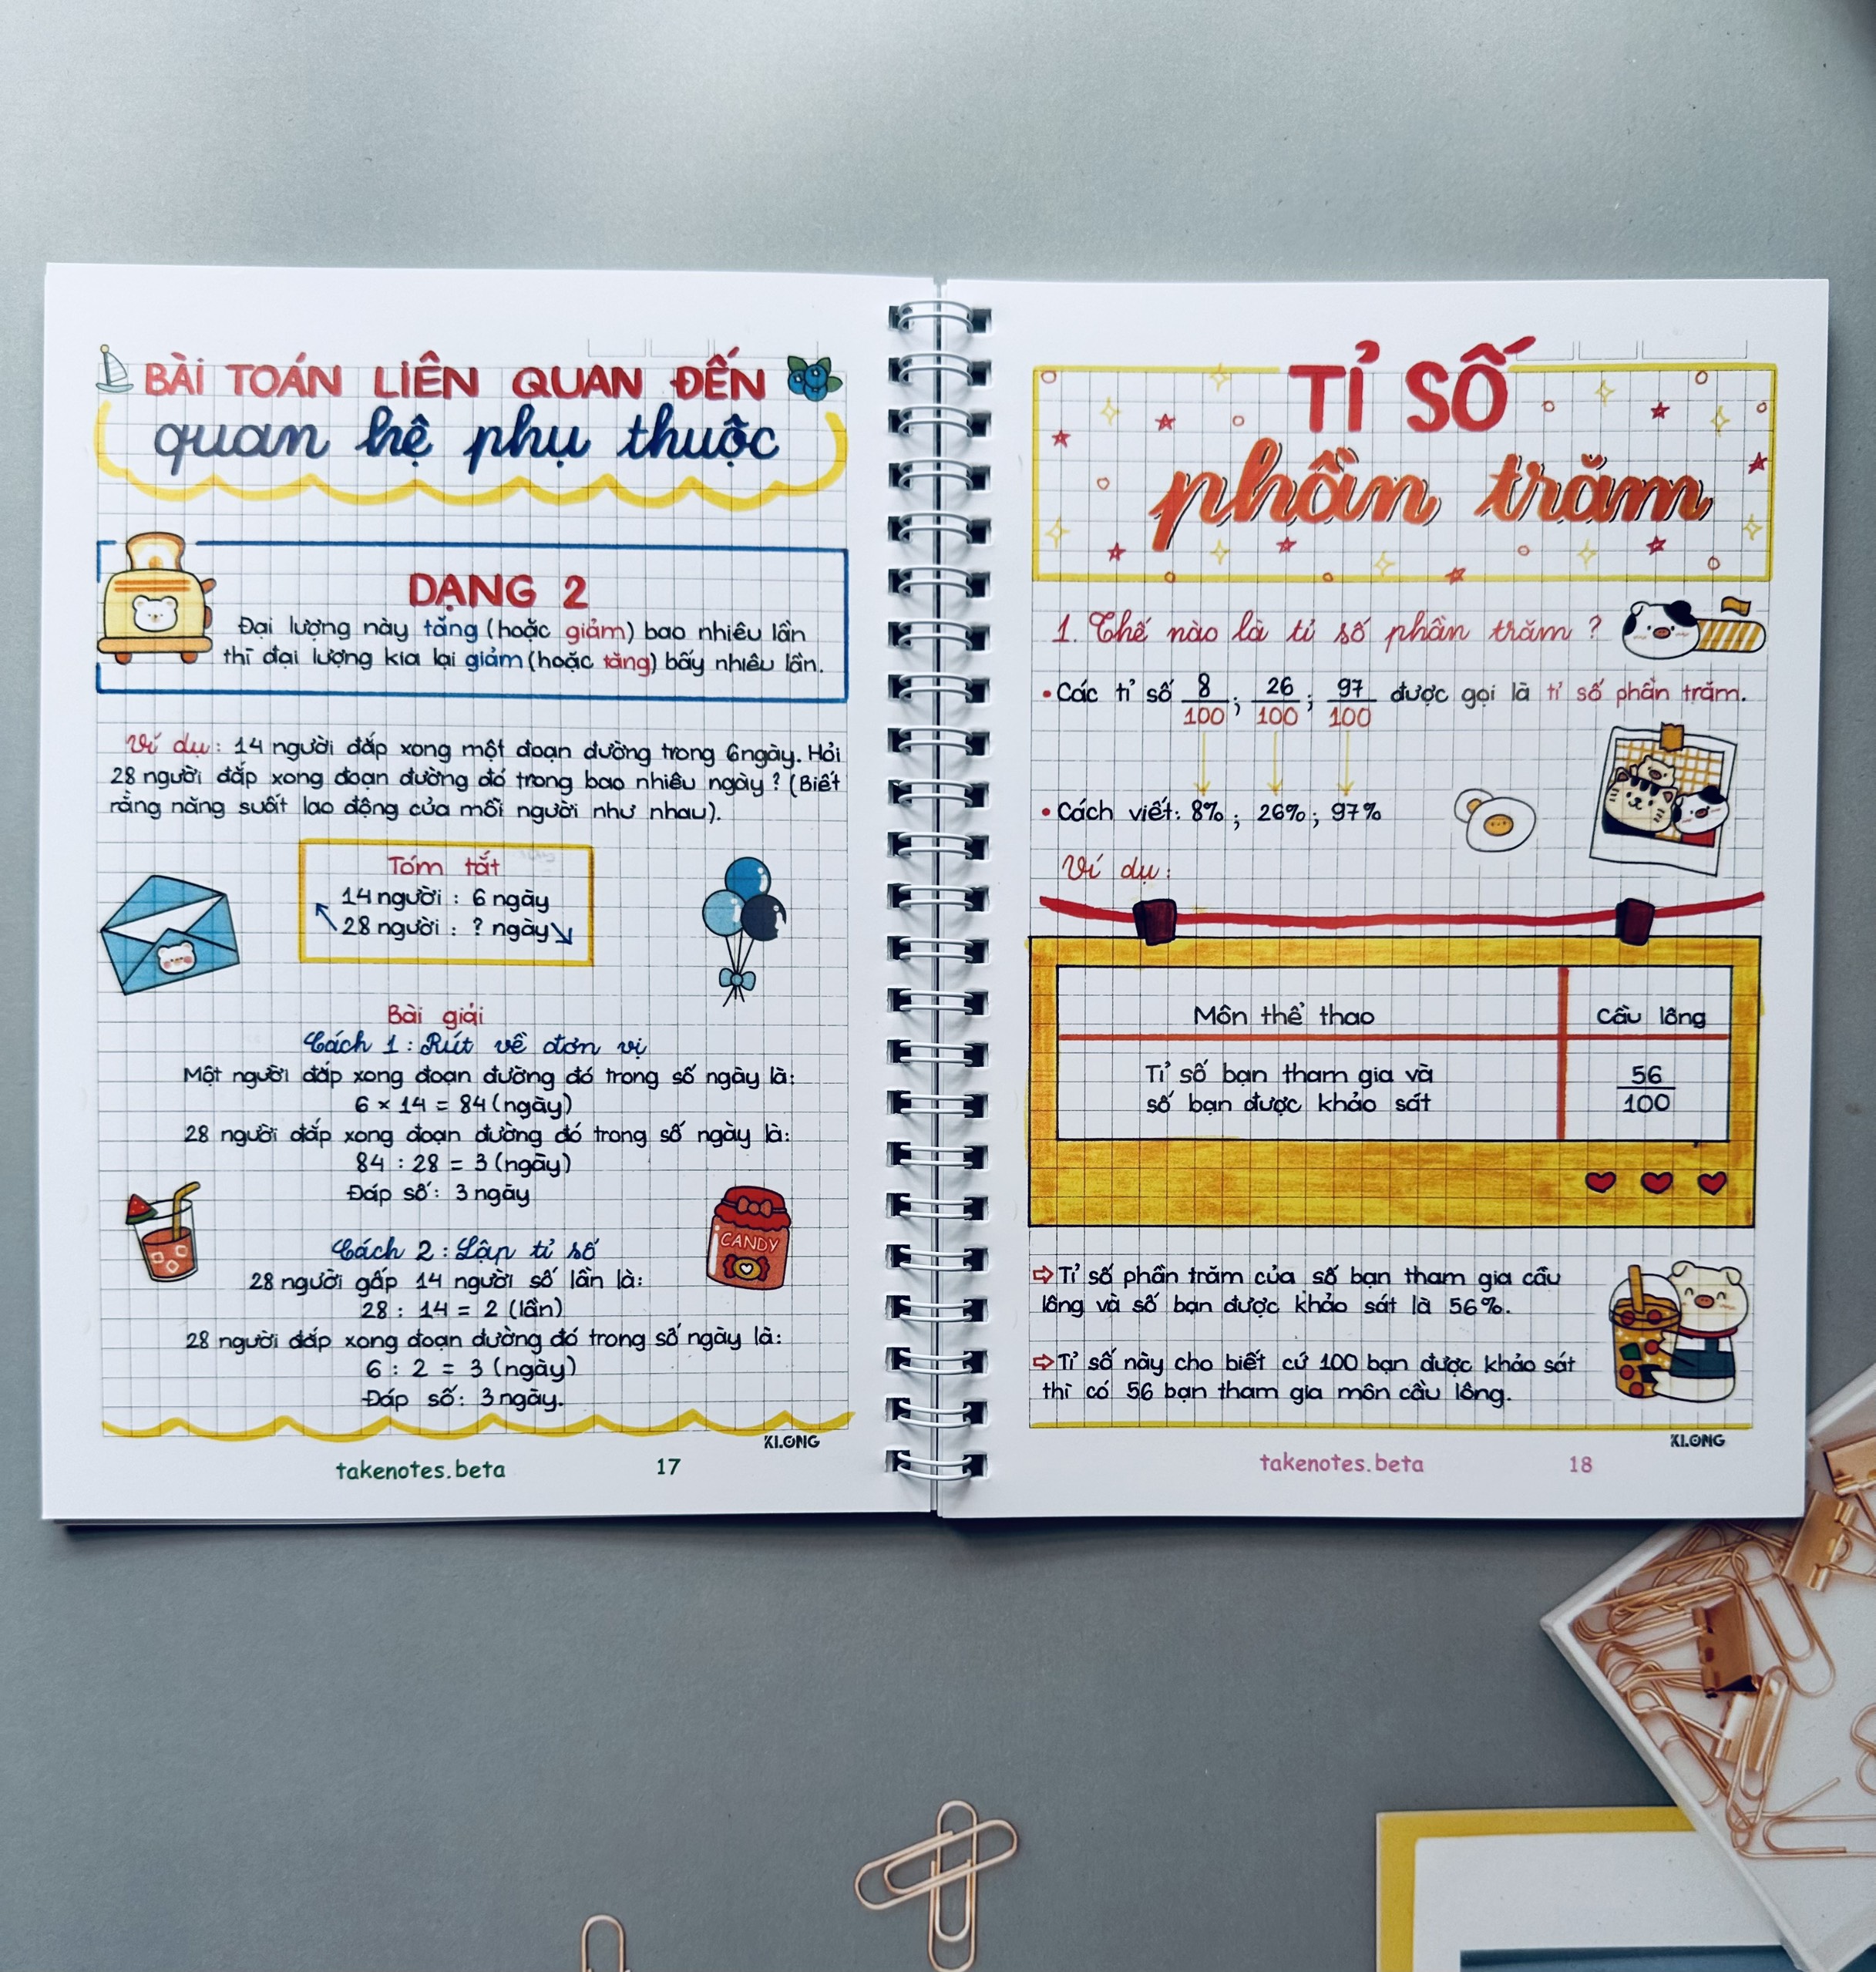 BÀI TOÁN LIÊN QUAN ĐẾN
quan hệ phụ thuộc
DẠNG 2
Đại lượng này tăng (hoặc giảm) bao nhiêu lần
thì đại lượng kia lại giảm (hoặc tăng) bấy nhiêu lần.
Ví dụ: 14 người đắp xong một đoạn đường trong 6 ngày. Hỏi
28 người đắp xong đoạn đường đó trong bao nhiêu ngày? (Biết
rằng năng suất lao động của mỗi người như nhau).
Tóm tắt
14 người : 6 ngày
28 người : ? ngày
Bài giải
Cách 1: Rút về đơn vị
Một người đắp xong đoạn đường đó trong số ngày là:
6 × 14 = 84 (ngày)
28 người đắp xong đoạn đường đó trong số ngày là:
84 : 28 = 3 (ngày)
Đáp số: 3 ngày
CANDY
Cách 2: Lập tỉ số
28 người gấp 14 người số lần là:
28 : 14 = 2 (lần)
28 người đắp xong đoạn đường đó trong số ngày là:
6 : 2 = 3 (ngày)
Đáp số: 3 ngày.
KLONG
takenotes.beta 17
TỈ SỐ
phần trăm
1. Thế nào là tỉ số phần trăm ?
• Các tỉ số 8/100; 26/100; 97/100 được gọi là tỉ số phần trăm.
• Cách viết: 8%; 26%; 97%
Ví dụ:
Môn thể thao Cầu lông
Tỉ số bạn tham gia và
số bạn được khảo sát 56/100
⇨ Tỉ số phần trăm của số bạn tham gia cầu
lông và số bạn được khảo sát là 56%.
⇨ Tỉ số này cho biết cứ 100 bạn được khảo sát
thì có 56 bạn tham gia môn cầu lông.
KLONG
takenotes.beta 18